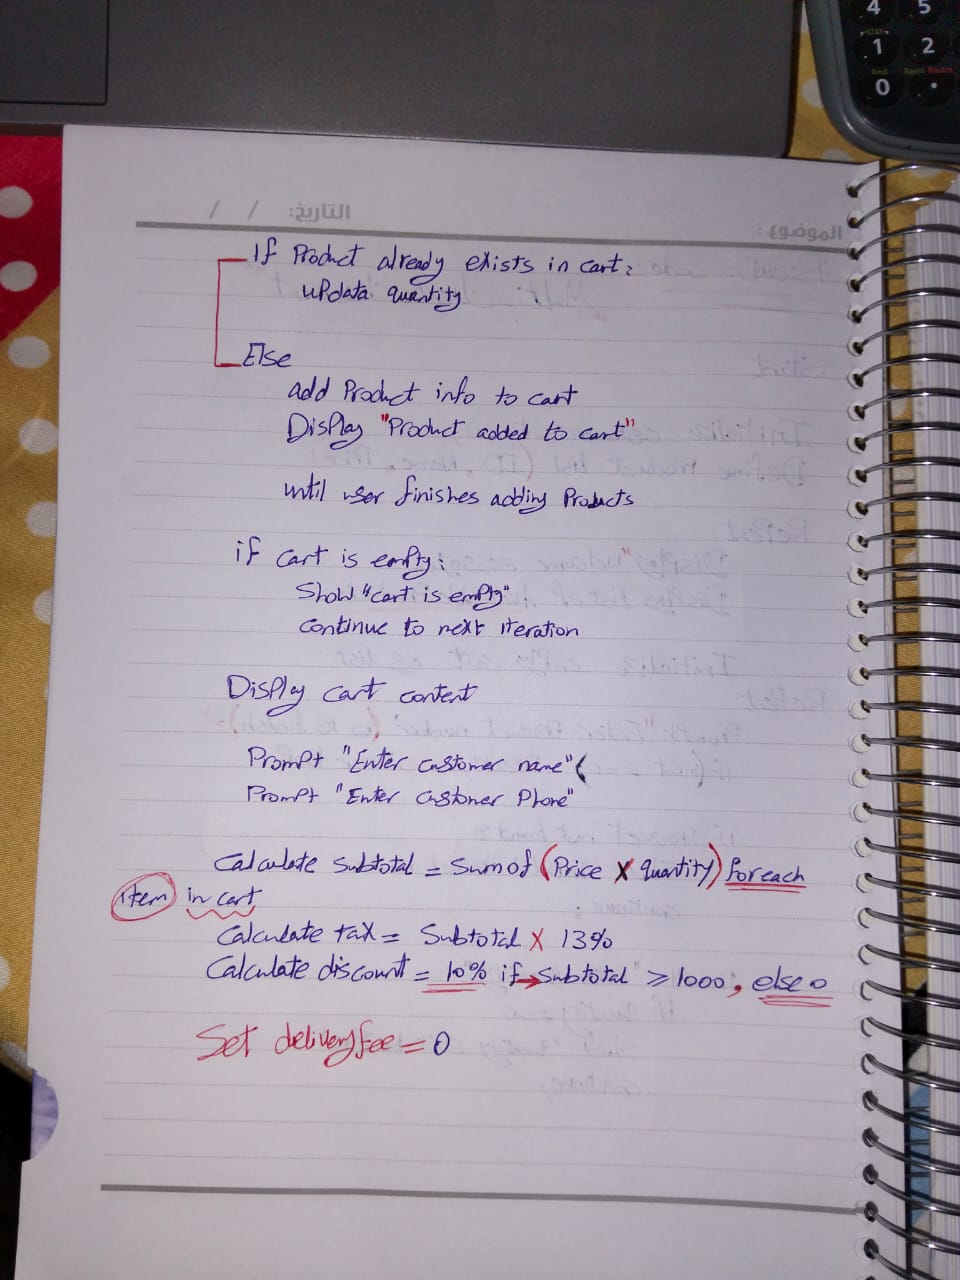 4 5
1 2
0 .
التاريخ: / /
الموضوع :
If Product already exists in cart:
updata quantity
Else
add Product info to cart
Display "Product added to cart"
until user finishes adding Products
if cart is empty:
Show "cart is empty"
continue to next iteration
Display cart content
Prompt "Enter customer name"(
Prompt "Enter customer Phone"
Calculate subtotal = Sum of (Price X quantity) for each
item in cart
Calculate tax = Subtotal X 13%
Calculate discount = 10% if → Subtotal ≥ 1000; else 0
Set deliveryfee = 0